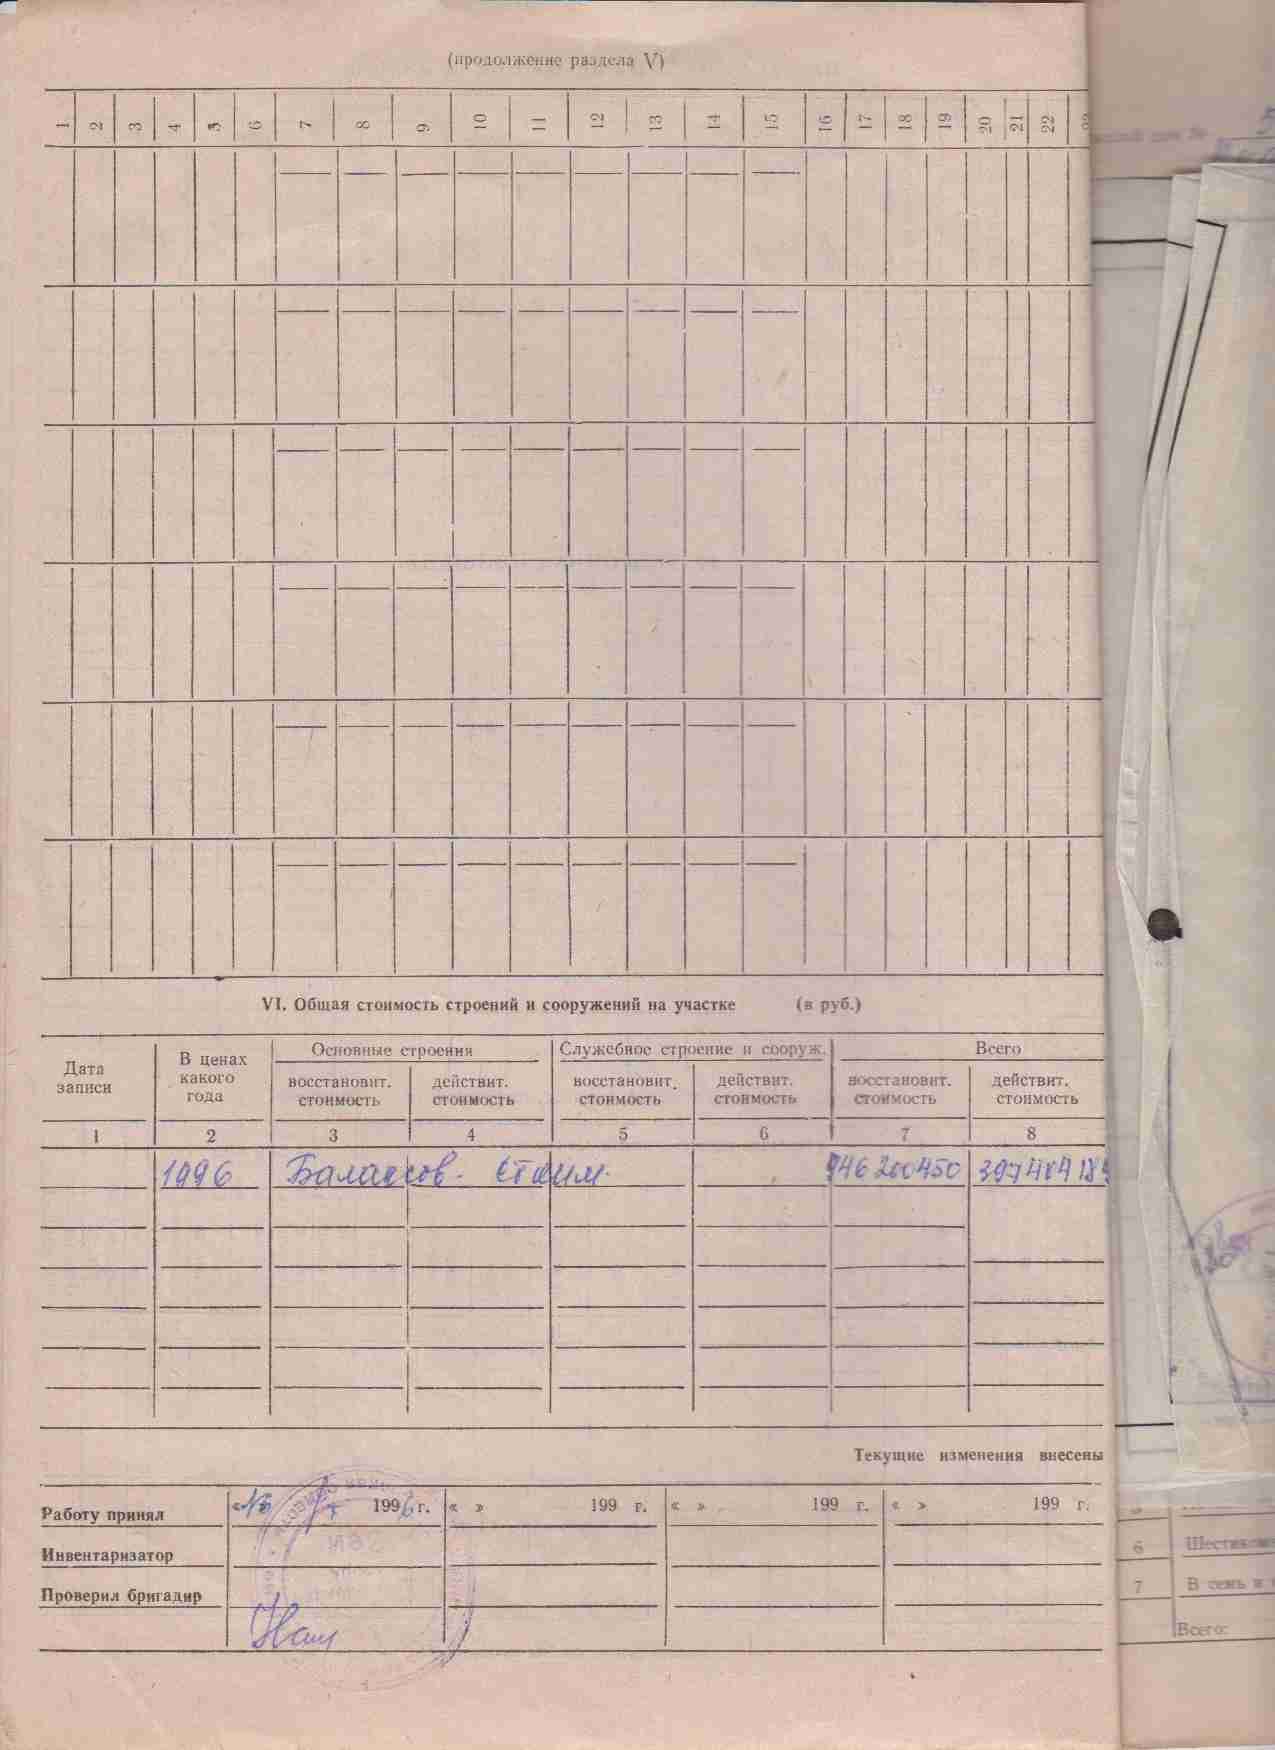 (продолжение раздела V)
1 2 3 4 5 6 7 8 9 10 11 12 13 14 15 16 17 18 19 20 21 22
VI. Общая стоимость строений и сооружений на участке (в руб.)
Дата записи
В ценах какого года
Основные строения
Служебное строение и сооруж.
Всего
восстановит. стоимость
действит. стоимость
восстановит. стоимость
действит. стоимость
восстановит. стоимость
действит. стоимость
1 2 3 4 5 6 7 8
1996 Балансов. стоим. 946200450
Текущие изменения внесены
Работу принял 1996 г. « » 199 г. « » 199 г. « » 199 г.
Инвентаризатор
Проверил бригадир
6
7 В семь и
Всего: